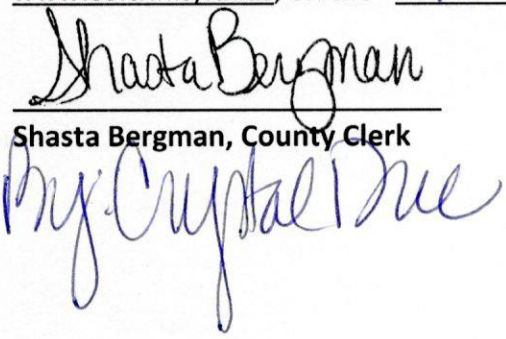 Shasta Bergman
Shasta Bergman, County Clerk
By: Crystal